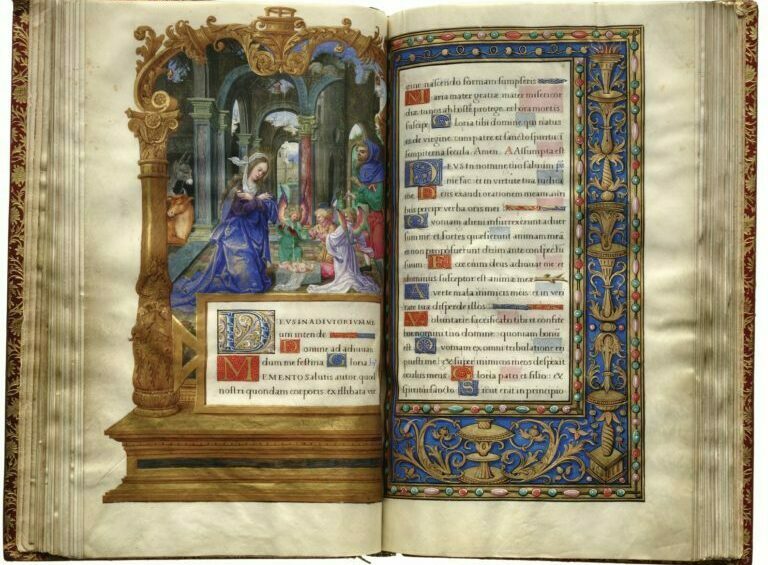 DEUS IN ADIUTORIUM ME
um intende
Domine ad adiuuan
dum me festina Gloria
MEMENTO salutis autor quod
nostri quondam corporis ex illibata vir
gine nascendo formam sumpseris
Maria mater gratiæ mater misericor
diæ tu nos ab hoste protege et hora mortis
suscipe Gloria tibi domine qui natus
es de virgine cum patre et sancto spiritu in
sempiterna secula Amen A Assumpta est
DEUS in nomine tuo saluum
me fac et in virtute tua iudica
me Deus exaudi orationem meam auri
bus percipe verba oris mei
Quoniam alieni insurrexerunt aduer
sum me et fortes quæsierunt animam meam
et non proposuerunt deum ante conspectu
suum Ecce enim deus adiuuat me et
dominus susceptor est animæ meæ
Auerte mala inimicis meis et in veri
tate tua disperde illos
Voluntarie sacrificabo tibi et confite
bor nomini tuo domine quoniam bonum
est Quoniam ex omni tribulatione eri
puisti me et super inimicos meos despexit
oculus meus Gloria patri et filio et
spiritui sancto Sicut erat in principio